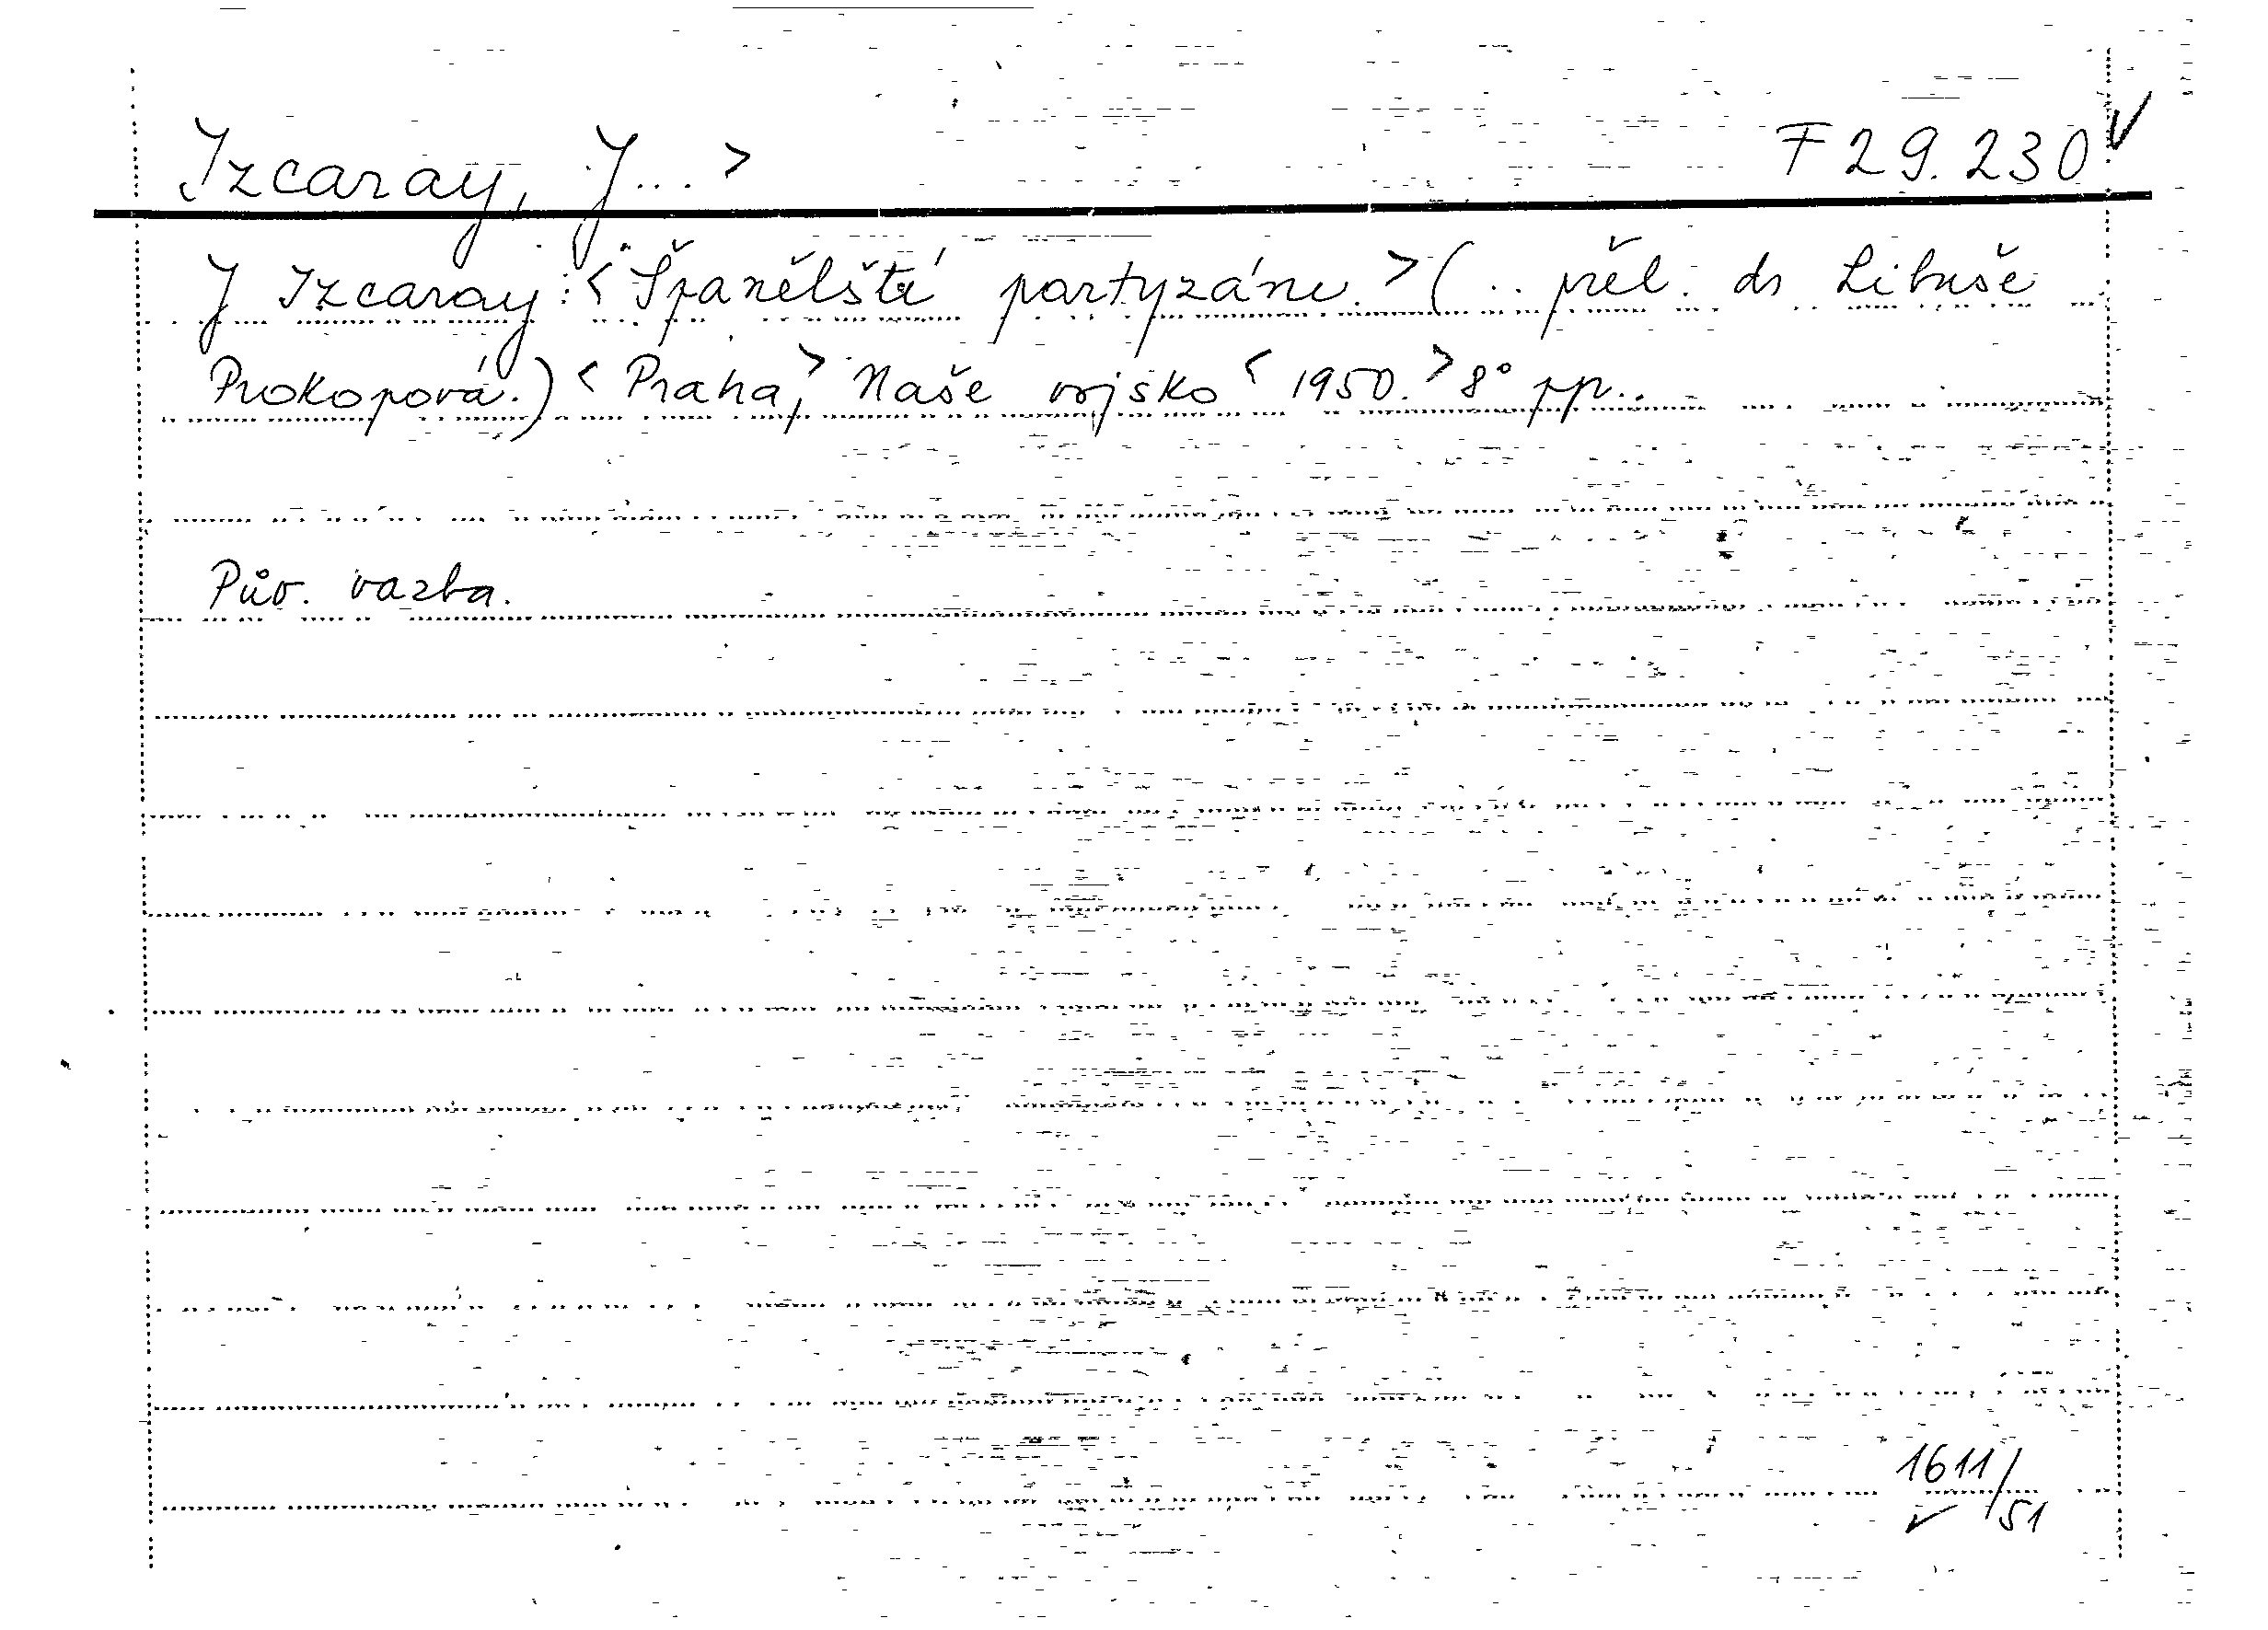 Izcaray, J...> F 29.230 ✓
J Izcaray: <Španělští partyzáni.> (.. přel. dr Libuše
Prokopová.) <Praha,> Naše vojsko <1950.> 8° pp..
Pův. vazba.
1611/51 ✓